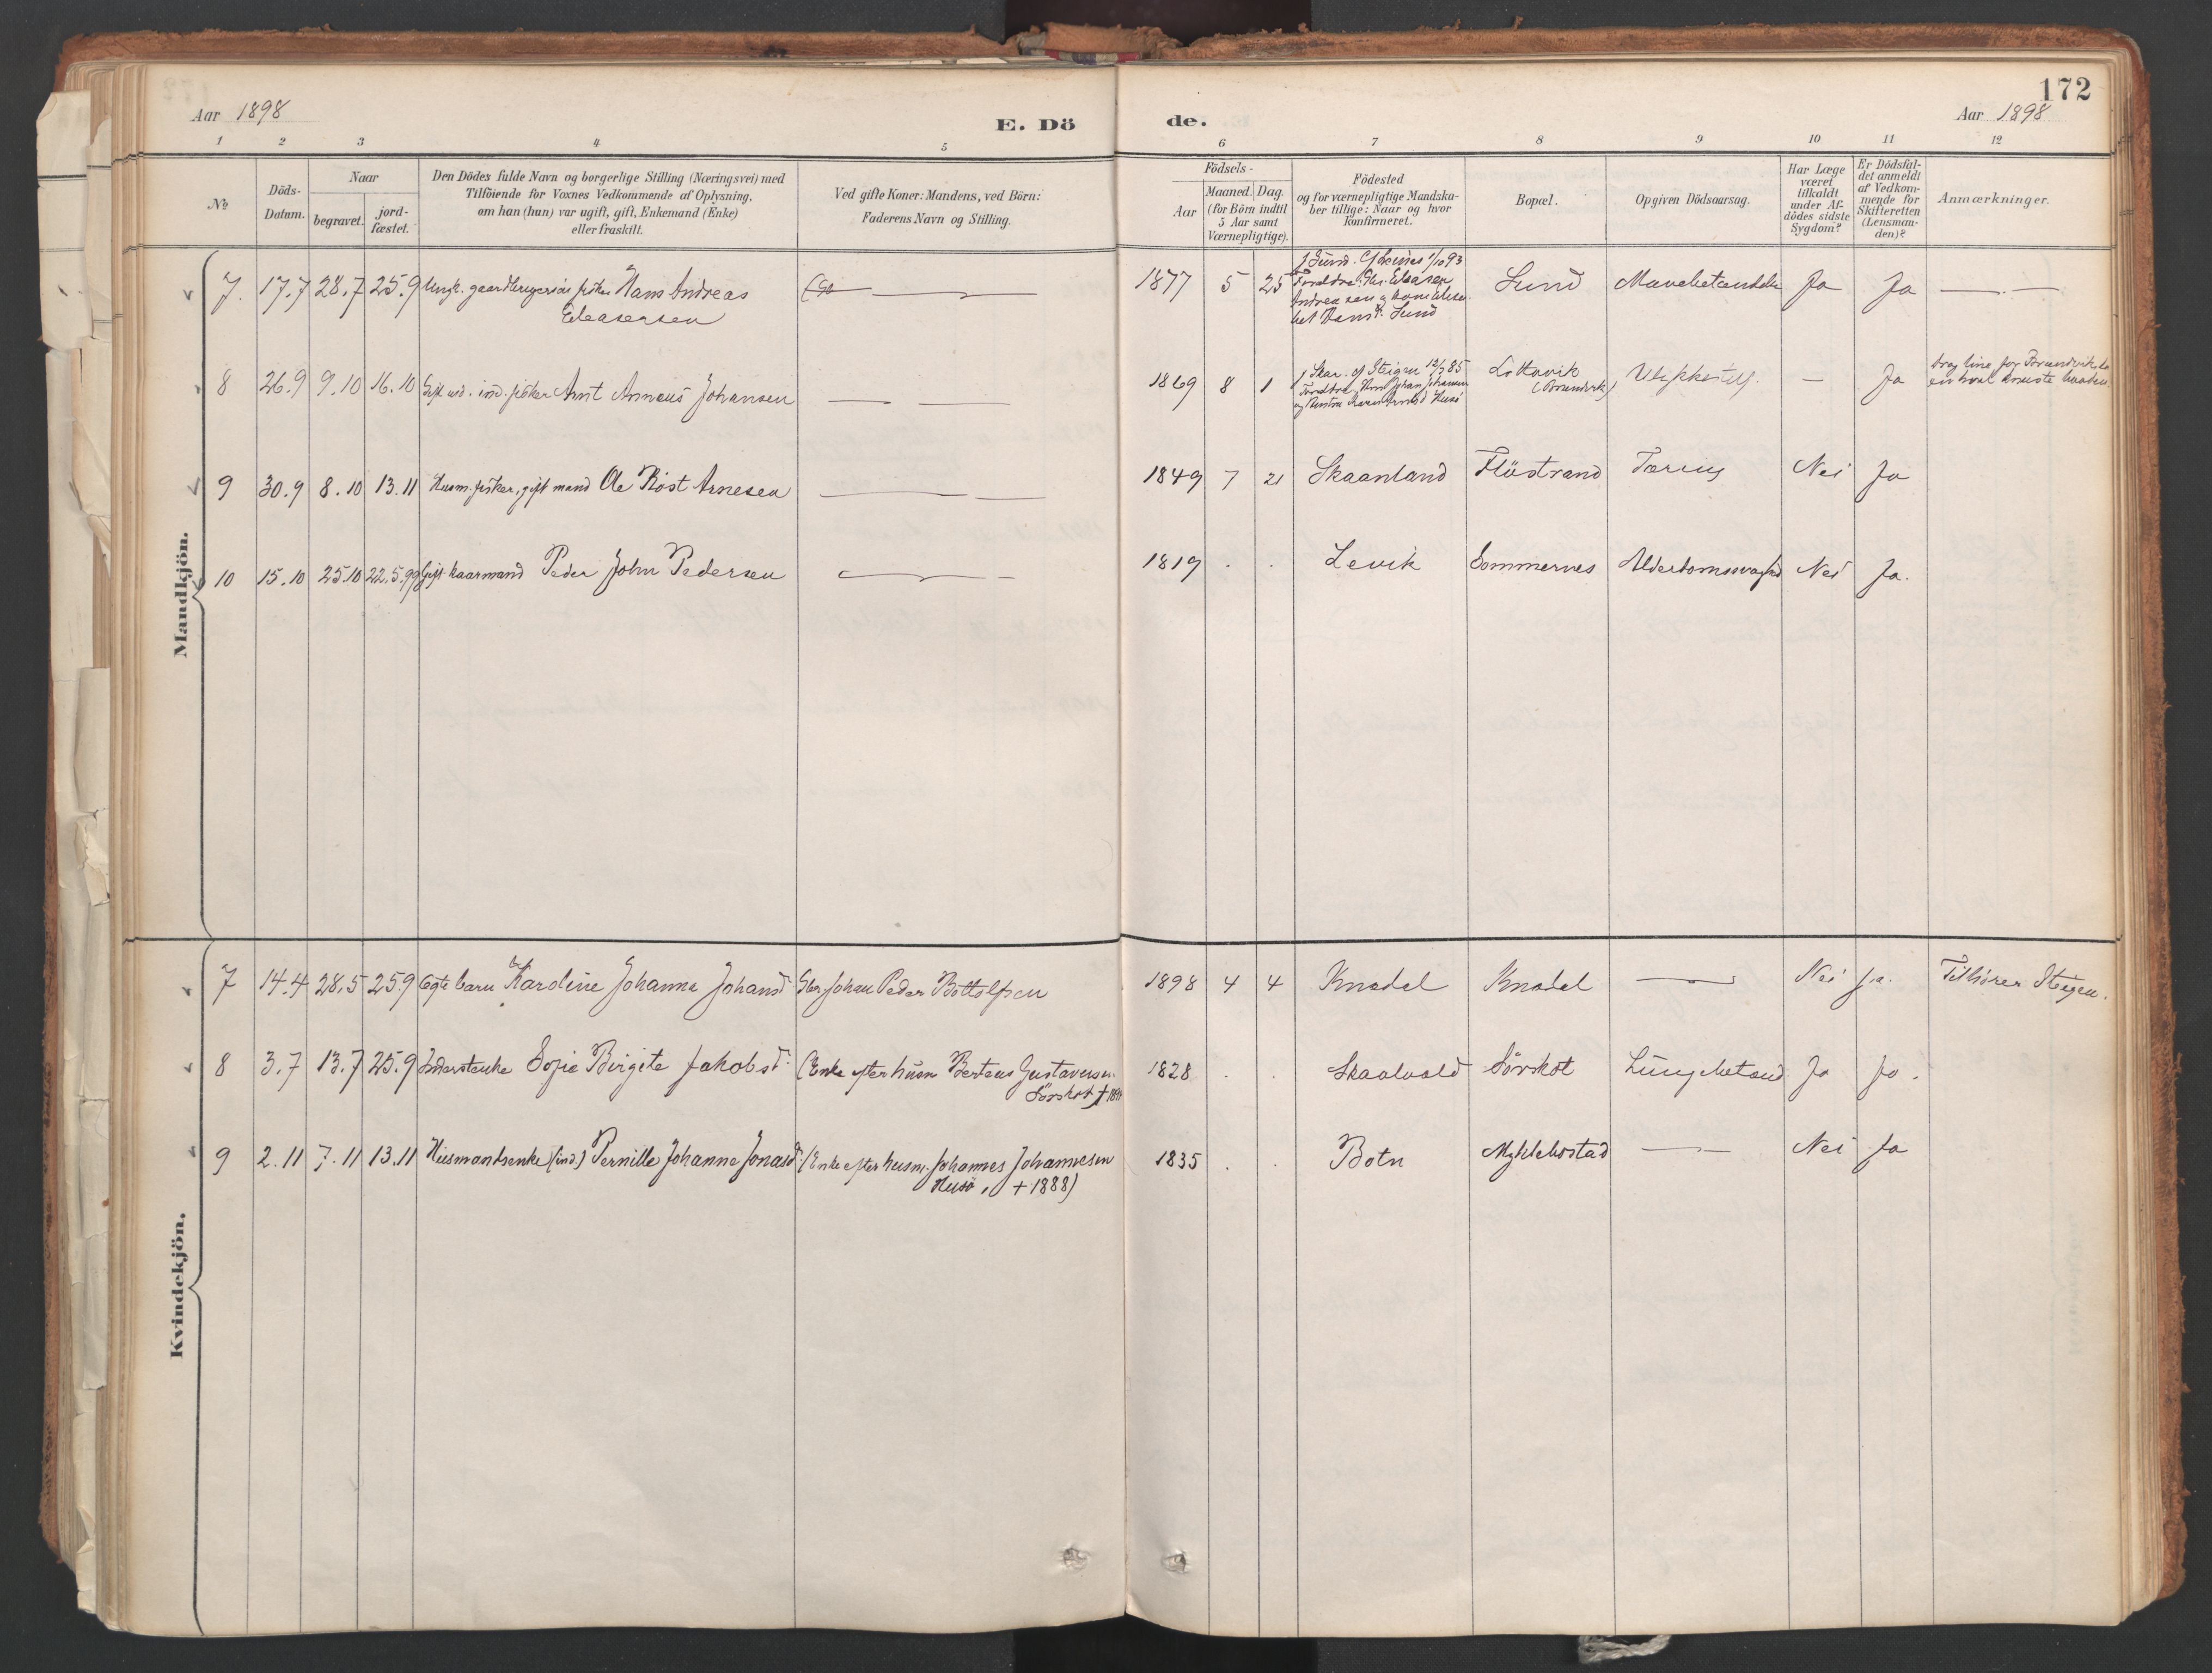 172
Aar 1898
E. Dö
de.
Aar 1898
1 2 3 4 5 6 7 8 9 10 11 12
№
Döds-
Datum.
Naar
begravet.
jord-
fæstet.
Den Dödes fulde Navn og borgerlige Stilling (Næringsvei) med
Tilföiende for Voxnes Vedkommende af Oplysning,
om han (hun) var ugift, gift, Enkemand (Enke)
eller fraskilt.
Ved gifte Koner: Mandens, ved Börn:
Faderens Navn og Stilling.
Födsels-
Aar
Maaned. Dag.
(for Börn indtil
5 Aar samt
Værnepligtige).
Födested
og for værnepligtige Mandska-
ber tillige: Naar og hvor
konfirmeret.
Bopæl.
Opgiven Dödsaarsag.
Har Læge
været
tilkaldt
under Af-
dödes sidste
Sygdom?
Er Dödsfal-
det anmeldt
af Vedkom-
mende for
Skifteretten
(Lensman-
den)?
Anmærkninger.
Mandkjön.
7. 17.7 28.7 25.9 Ungk. gaardbrugersön fisker Hans Andreas
Eleasersen
1877 5 25
Lund
Ja Ja
8 26.9 9.10 16.10 Gift ind. fisker Arnt Anneus Johansen
1869 8 1
Ja
9 30.9 8.10 13.11 Husm. fisker, gift mand Ole Röst Arnesen
1849 7 21 Skaanland Flöstrand Tæring Nei Ja
10 15.10 25.10 22.5.99 Gift kaarmand Peder John Pedersen
1819 . . Levik Sommernes Alderdomssvaghed Nei Ja.
Kvindekjön.
7 14.4 28.5 25.9 Ægte barn Karoline Johanna Johansd. Gbr. Johan Peder Bottolfsen
1898 4 4 Knædal Knædal Nei Ja. Tilhörer Steigen.
8 3.7 13.7 25.9 Inderstenke Sofie Birgite Jakobsd. (Enke efter husm Berteus Gustavusen
Sörskot
1828 . . Skaalvold Sörskot Lungebetænd. Ja Ja.
9 2.11 7.11 13.11 Husmandsenke (ind.) Pernille Johanna Jonasd. (Enke efter husm. Johannes Johannesen
Husö, + 1888)
1835 . . Botn Myklebostad Nei Ja